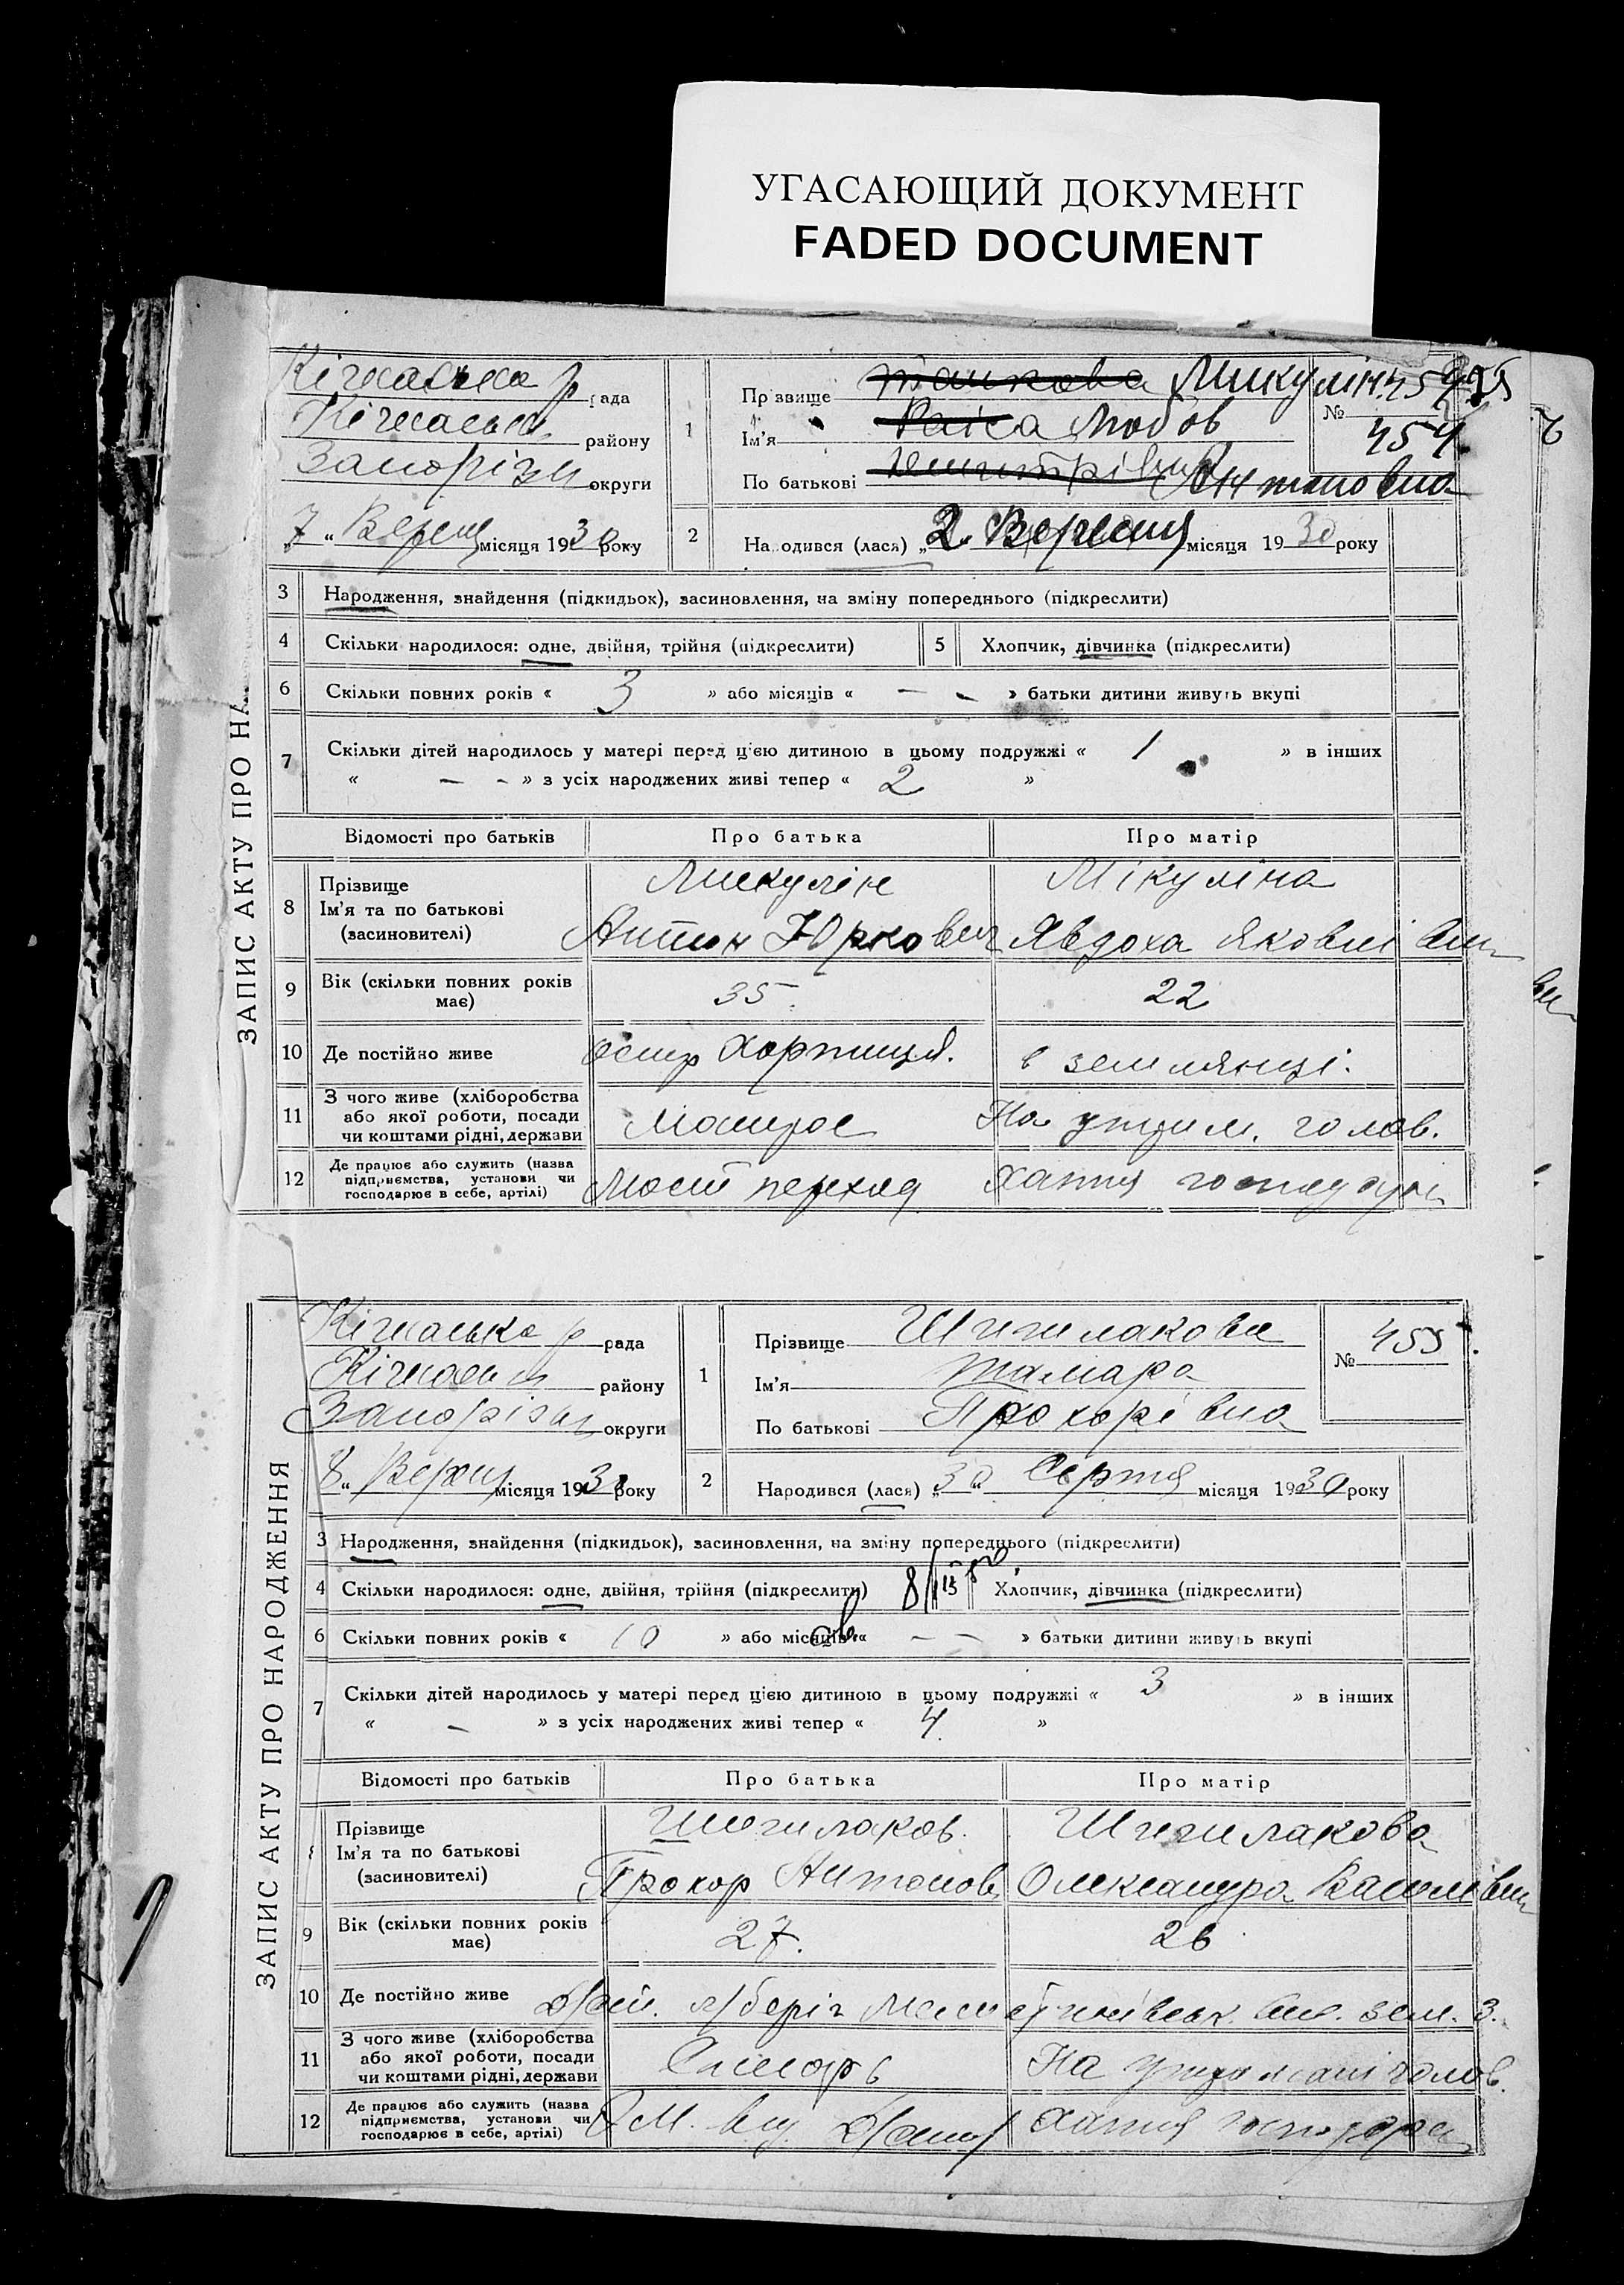 УГАСАЮЩИЙ ДОКУМЕНТ
FADED DOCUMENT
ЗАПИС АКТУ ПРО НА
Кічкаська р рада
району
округи
7 " Вересня місяця 1930 року
1
Прізвище Микулін
Ім'я Раїса Любов
По батькові Антоновна
№ 454
2
Народився (лася) „2 Вересня місяця 1930 року
3 Народження, знайдення (підкидьок), засиновлення, на зміну попереднього (підкреслити)
4 Скільки народилося: одне, двійня, трійня (підкреслити) 5 Хлопчик, дівчинка (підкреслити)
6 Скільки повних років « 3 » або місяців « — - » батьки дитини живуть вкупі
7 Скільки дітей народилось у матері перед цією дитиною в цьому подружжі « 1 » в інших
« — - » з усіх народжених живі тепер « 2 »
Відомості про батьків Про батька Про матір
8 Прізвище
Ім'я та по батькові
(засновителі)
Микулін Мікуліна
Антон Юркович Явдоха Яковлівн
9 Вік (скільки повних років має) 35 22
10 Де постійно живе Остр Хортиця. в землянці.
11 З чого живе (хліборобства
або якої роботи, посади
чи коштами рідні, держави
На утрим. голов.
12 Де працює або служить (назва
підприємства, установи чи
господарює в себе, артілі)
Мост перехид хатня господарк
ЗАПИС АКТУ ПРО НАРОДЖЕННЯ
Кічкаська р рада
району
округи
8 " Вересн місяця 1930 року
1
Прізвище Шишлакова
Ім'я Тамара
По батькові Прохорівна
№ 455
2
Народився (лася) „30 Серпня місяця 1930 року
3 Народження, знайдення (підкидьок), засиновлення, на зміну попереднього (підкреслити)
4 Скільки народилося: одне, двійня, трійня (підкреслити) Хлопчик, дівчинка (підкреслити)
6 Скільки повних років « 10 » або місяців « — — » батьки дитини живуть вкупі
7 Скільки дітей народилось у матері перед цією дитиною в цьому подружжі « 3 » в інших
« — » з усіх народжених живі тепер « 4 »
Відомості про батьків Про батька Про матір
Прізвище
Ім'я та по батькові
(засиновителі)
Шишлаков Шишлакова
Прохор Антонов Олександра Василівн
9 Вік (скільки повних років має) 27. 26
10 Де постійно живе л/беріг
11 З чого живе (хліборобства
або якої роботи, посади
чи коштами рідні, держави
Слюсарь На утриманні голов.
12 Де працює або служить (назва
підприємства, установи чи
господарює в себе, артілі)
хатня господарк